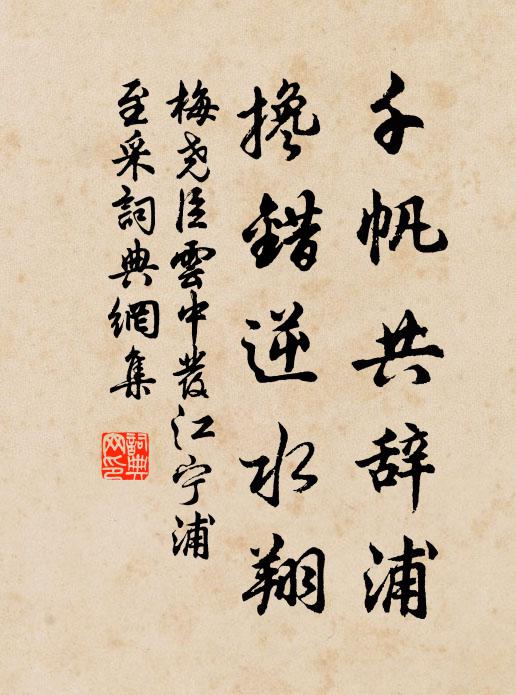 千帆共辞浦
搀错逆水翔
梅尧臣雲中發江宁浦
至采詞典網集
詞典
网印